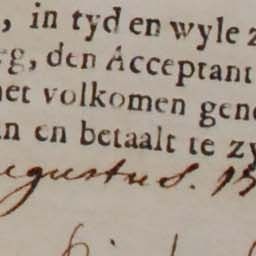 , in tyd en wyle z
rg, den Acceptant
net volkomen geno
an en betaalt te zy
ugustus. 13